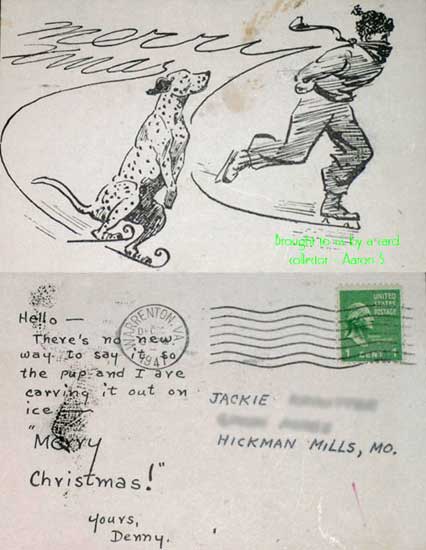 merry
Xmas
Brought to us by a card
collector - Aaron S.
Hello —
There's no new
way to say it so
the pup and I are
carving it out on
ice —
"Merry
Christmas!"
yours,
Denny.
WARRENTON, VA.
1941
UNITED
STATES
POSTAGE
1 CENT 1
JACKIE
HICKMAN MILLS, MO.